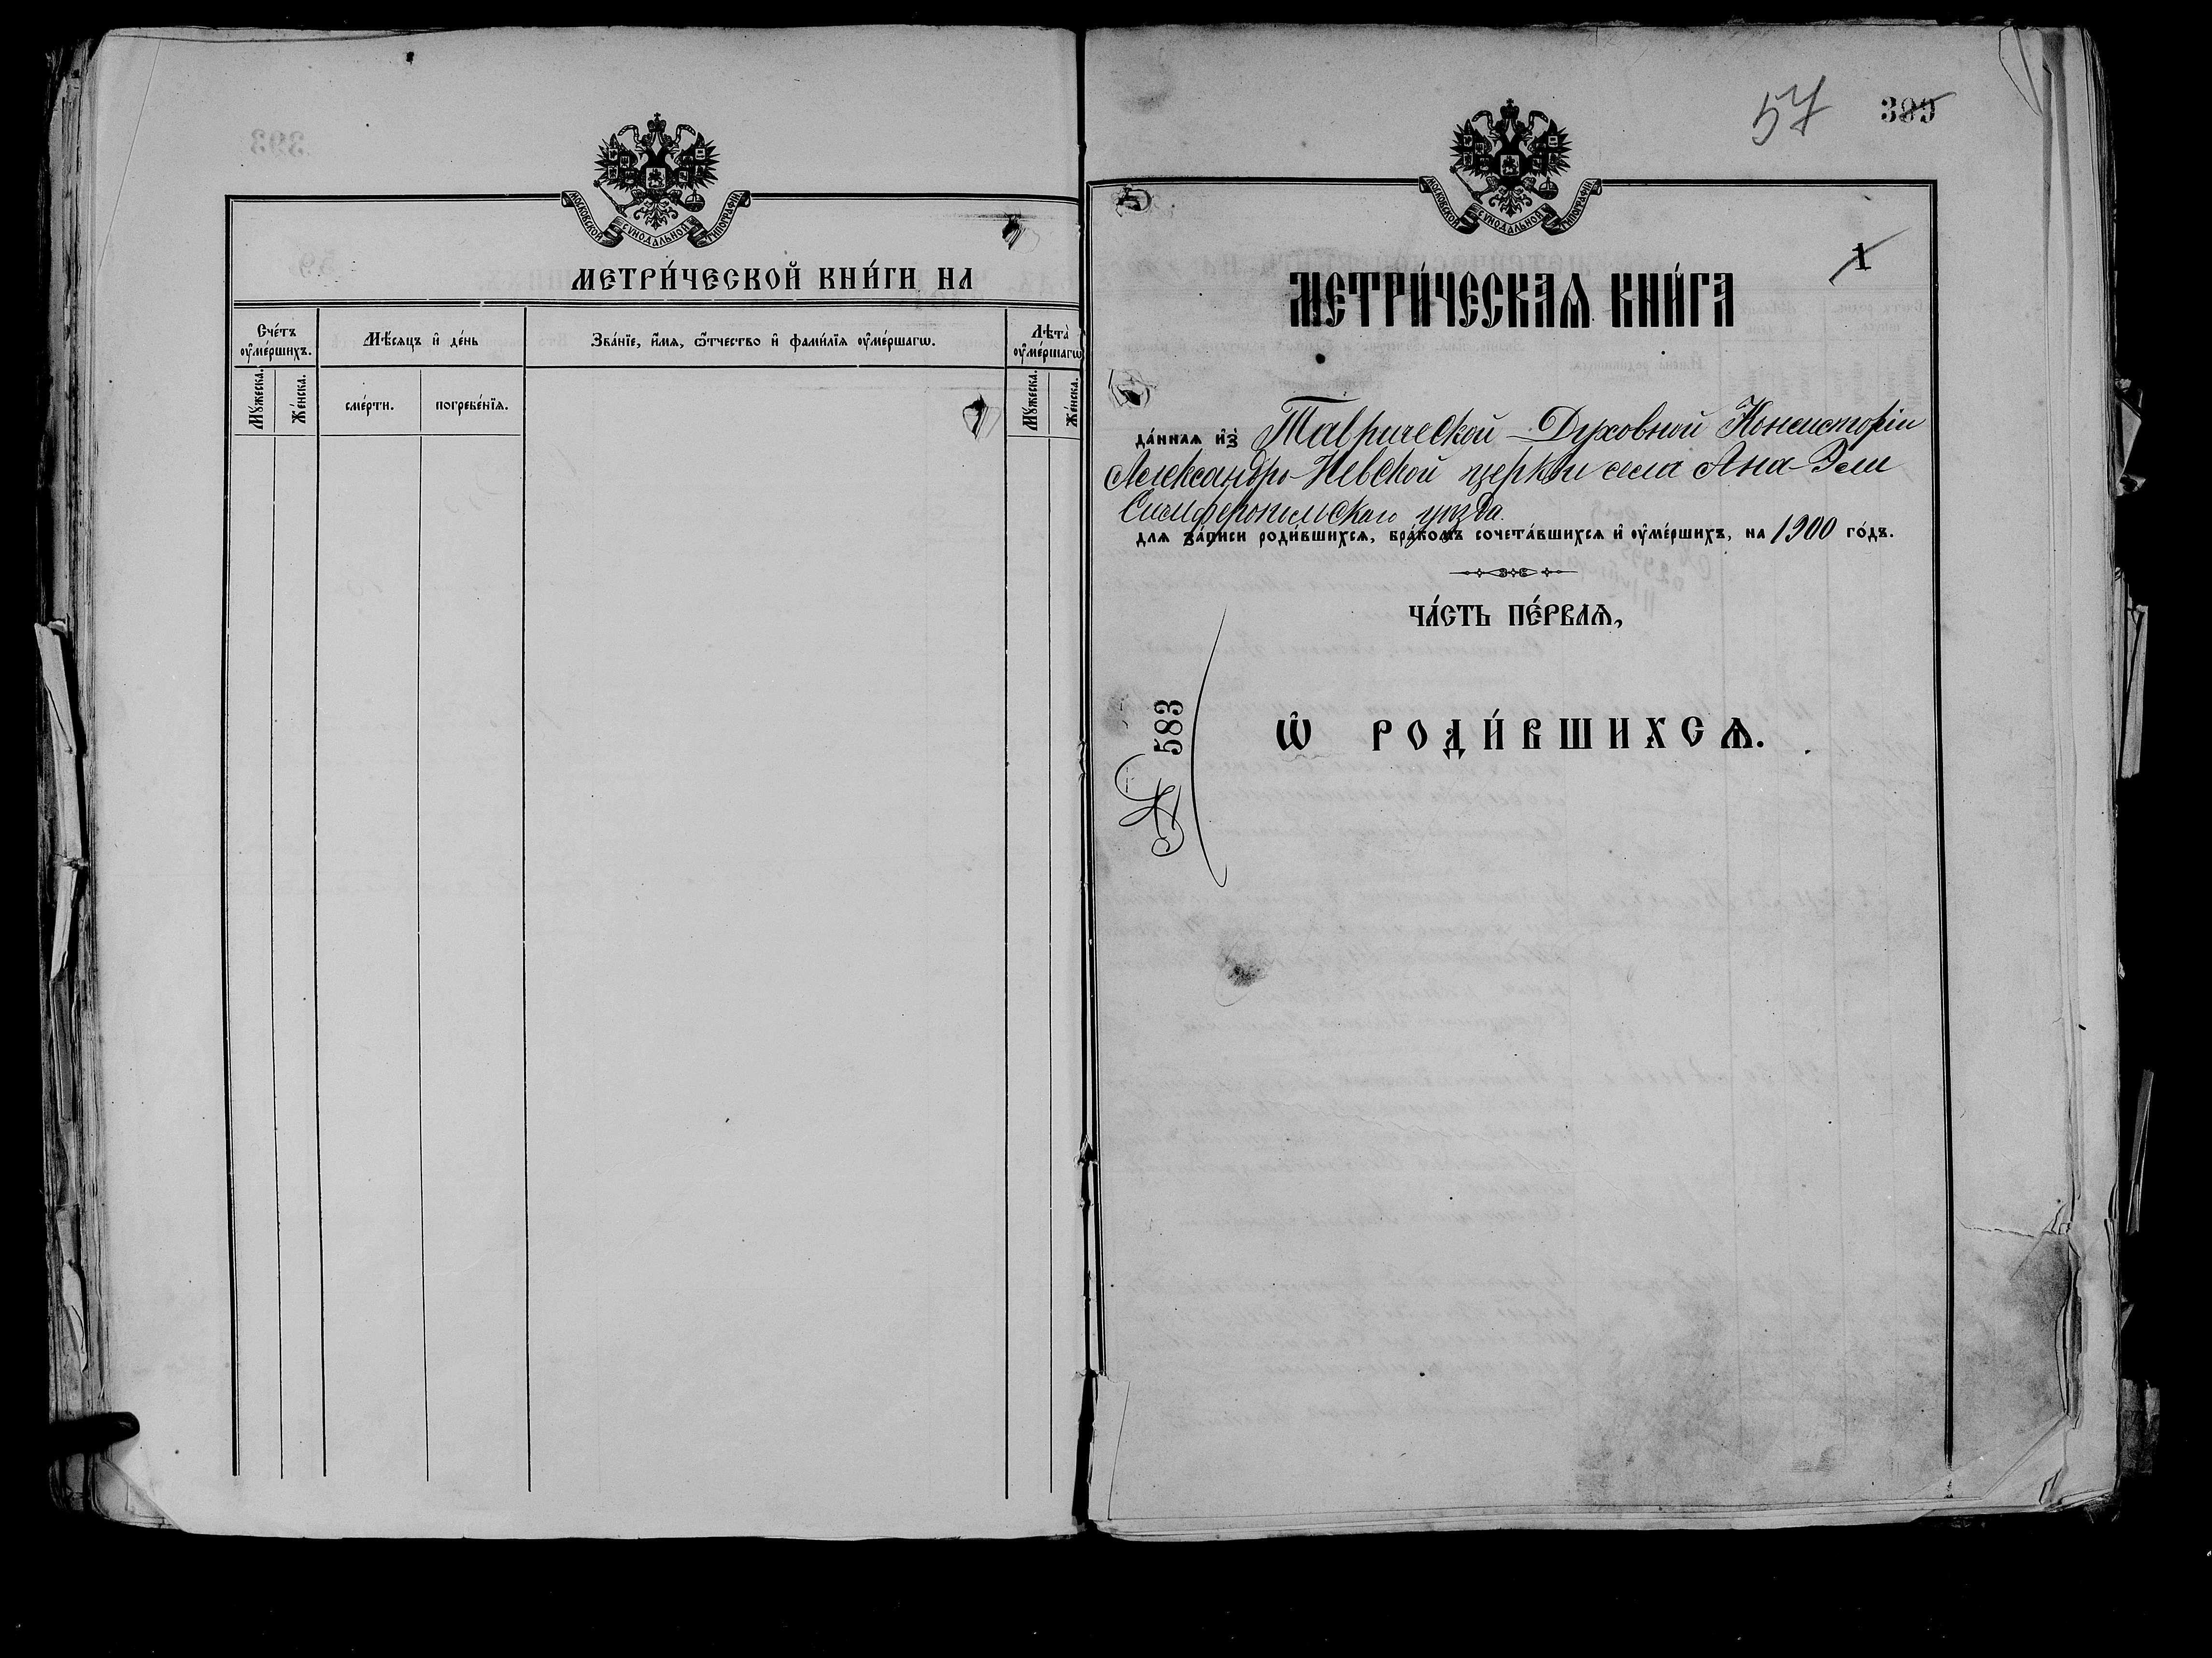 МОСКОВСКОЙ СУНОДАЛЬНОЙ ТИПОГРАФІИ
МЕТРИ́ЧЕСКОЙ КНИ́ГИ НА
Сче́тъ ᲂу҆ме́ршихъ.
Мѣ́сяцъ и҆ де́нь
Зва́нїе, и҆́мѧ, ѻ҆́тчество и҆ фами́лїѧ ᲂу҆ме́ршагѡ.
Лѣта̀ ᲂу҆ме́ршагѡ
Мꙋ́жеска.
Же́нска.
сме́рти.
погребе́нїѧ.
Мꙋ́жеска.
Же́нска.
57 399
МОСКОВСКОЙ СУНОДАЛЬНОЙ ТИПОГРАФІИ
1
МЕТРИ́ЧЕСКАѦ КНИ́ГА
да́ннаѧ и҆з̾ Таврической Духовной Консисторіи
Александро-Невской церкви села Ана-Эли
Симферопольскаго уѣзда.
длѧ за́писи роди́вшихсѧ, бра́комъ сочета́вшихсѧ и҆ ᲂу҆ме́ршихъ, на 1900 го́дъ.
ЧА́СТЬ ПЕ́РВАѦ,
№ 583
Ѽ РОДИ́ВШИХСѦ.